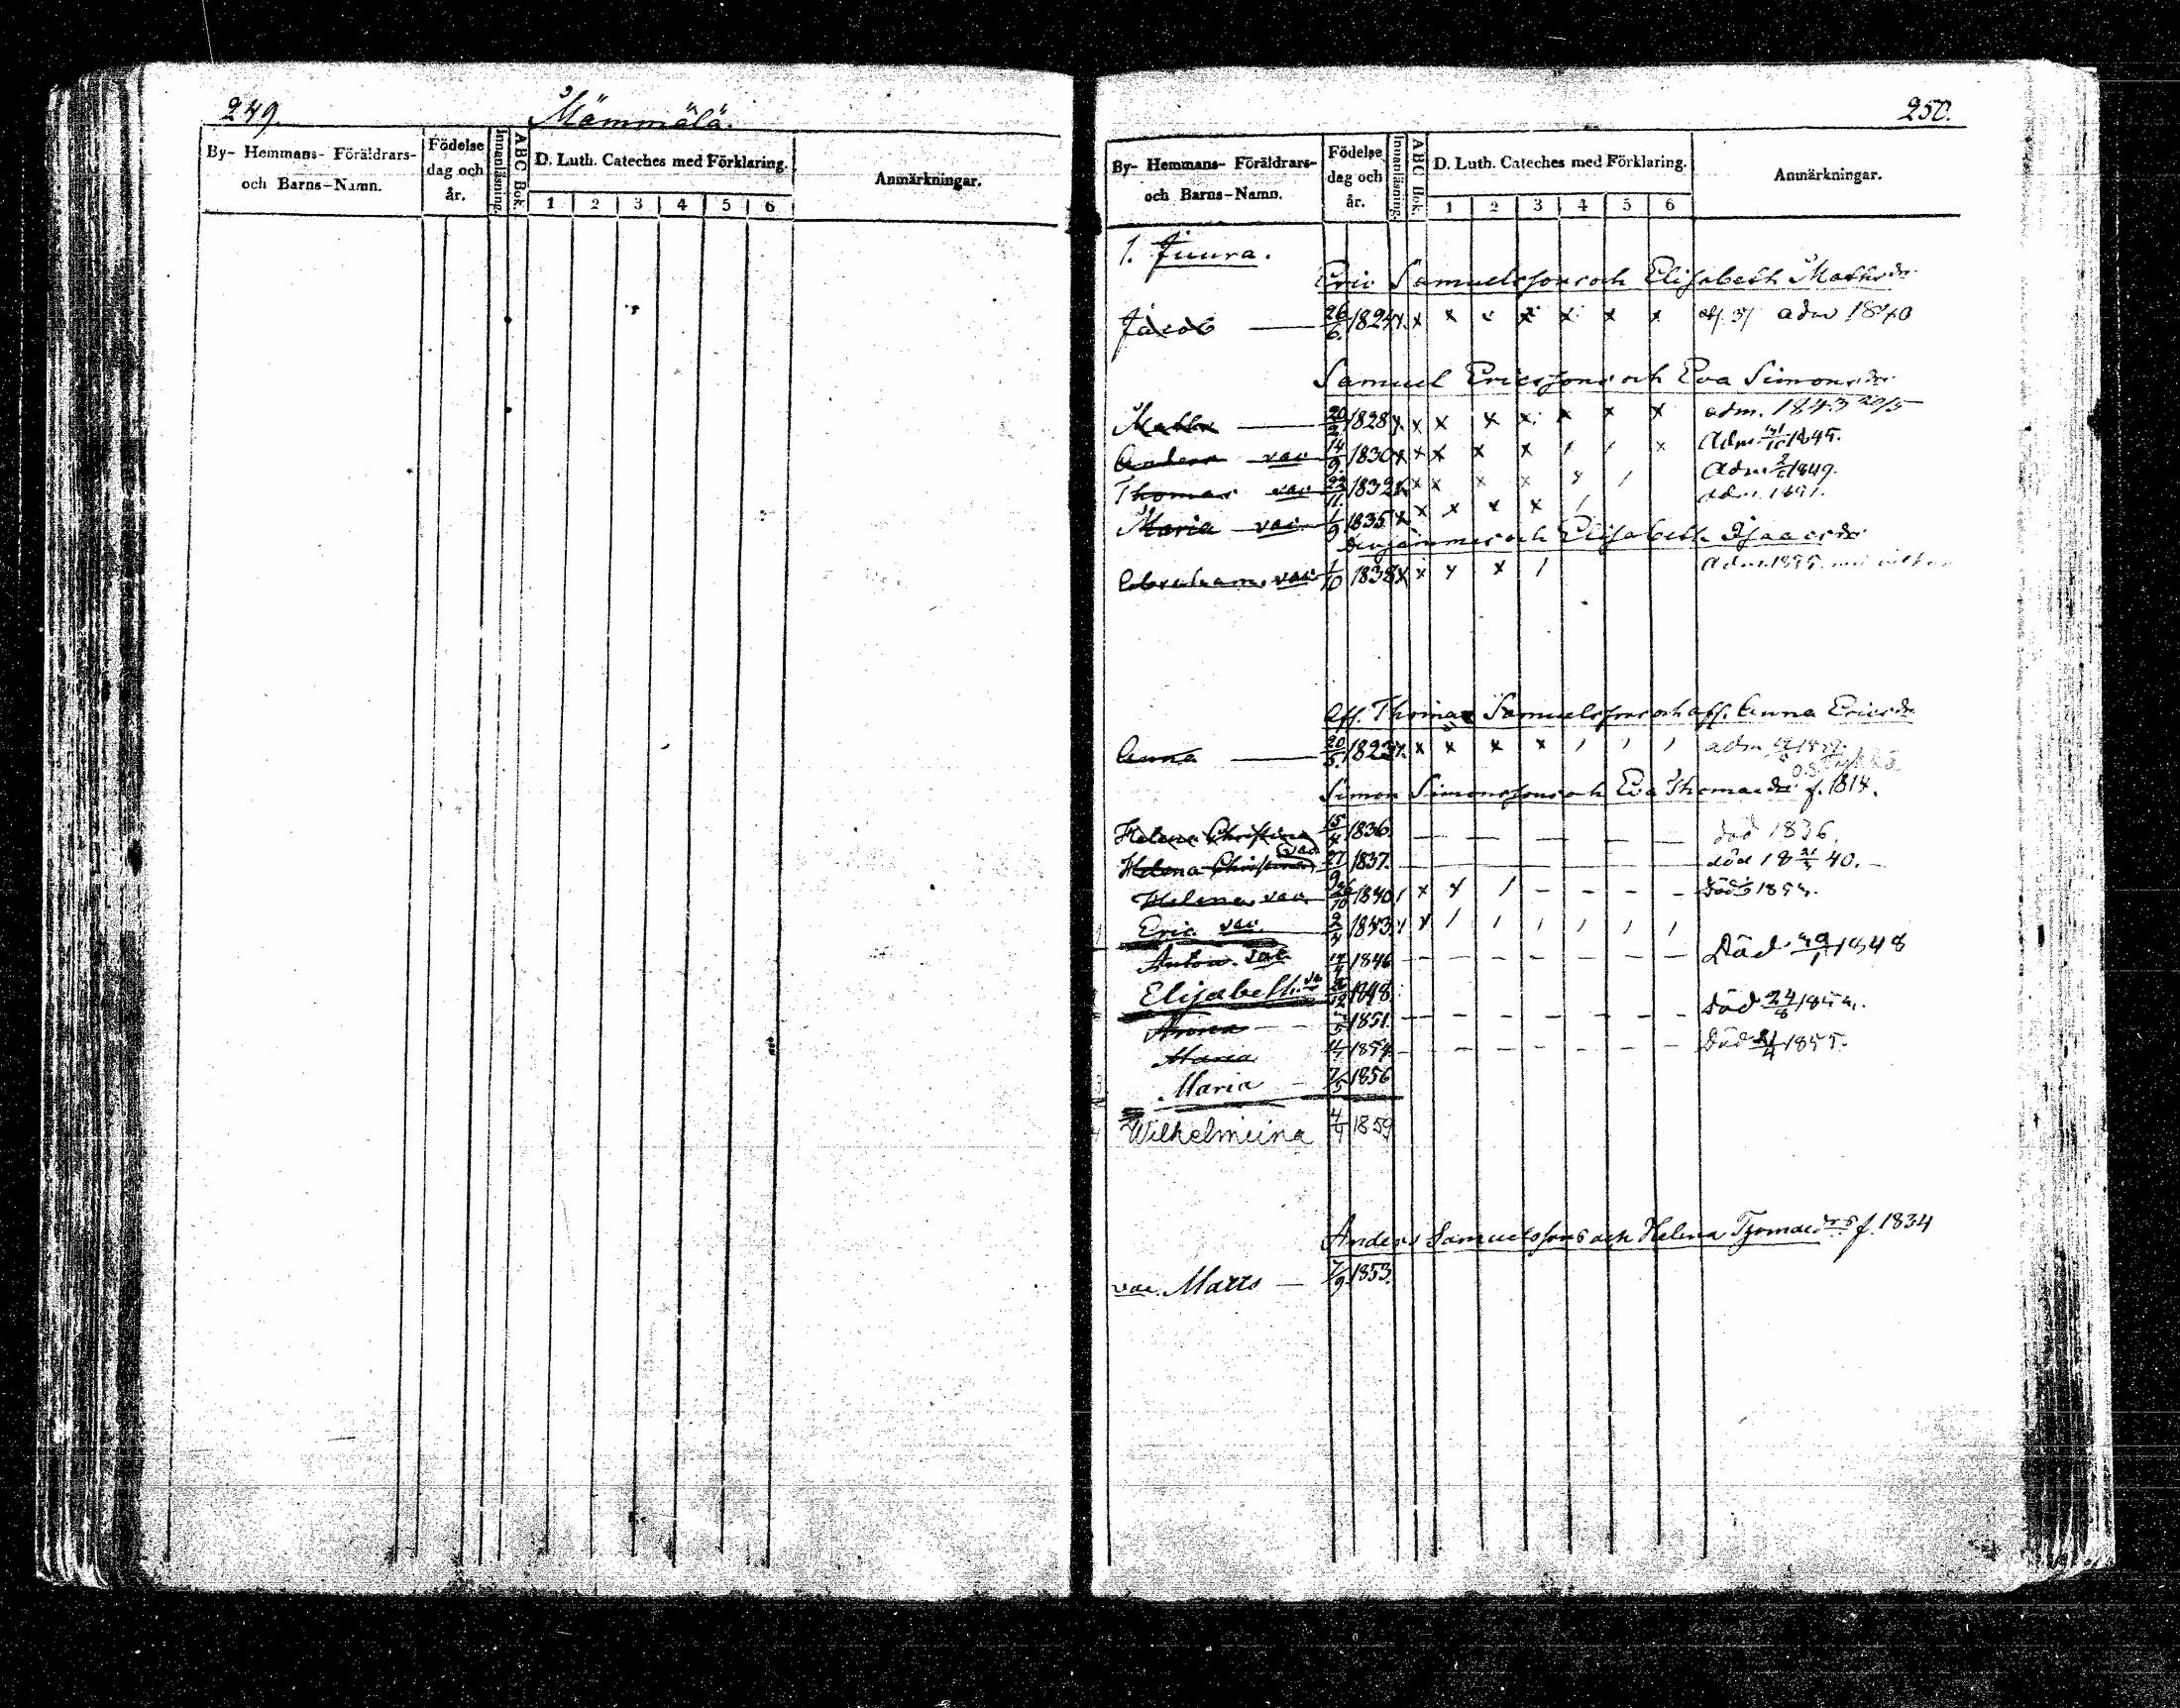 249.
Mämmälä.
By- Hemmans- Föräldrars- och Barns-Namn.
Födelse dag och år.
Innanläsning.
ABC Bok.
D. Luth. Cateches med Förklaring.
1 2 3 4 5 6
Anmärkningar.
250.
By- Hemmans- Föräldrars- och Barns-Namn.
Födelse dag och år.
Innanläsning.
ABC Bok.
D. Luth. Cateches med Förklaring.
1 2 3 4 5 6
Anmärkningar.
1. Juura.
Eric Samuelssons och Elisabeth Mattsdr
Jacob 26/6. 1824 x x x x x x x adm 1840
Samuel Ericssons och Eva Simonsdr
Matts 1828 x x x x x x x x adm. 1843 20/5
Anders vac 14/9. 1830 x x x x x / / x Adm. 1845.
Thomas vac 22/11. 1832 x x x x x / Adm. 1849.
Maria vac. 1/9 1835 x x x x x / adm. 1851.
Densammes och Elisabeth Isaacsdr
Abraham vac 1/10 1838 x x x x / Adm. 1855.
aff. Thomas Samuelssons och aff. Anna Ericsdr
Anna 20/5. 1823 x x x x / / / adm
Simon Simonssons och Eva Thomasdr f. 1814.
Helena Christina 15/4 1836. — — — — — — död 1836.
Helena Christina vac 27/9 1837. död 18 40. —
Helena vac 26/10 1840 / x x / — — — — Död 1854.
Eric vac. 2/4 1843 x / / / / / /
Anton vac 1846 — — — — — — — Död 1848
Elisabeth vac 1848.
Anna — — 1851. — — — — — — — Död 24/8
Maria 1854 — — — — — — — Död 1855.
Maria — 7/5 1856
Wilhelmina 4/7 1859
Anders Samuelssons och Helena Tomasdrs f. 1834
vac. Matts — 7/9. 1853.